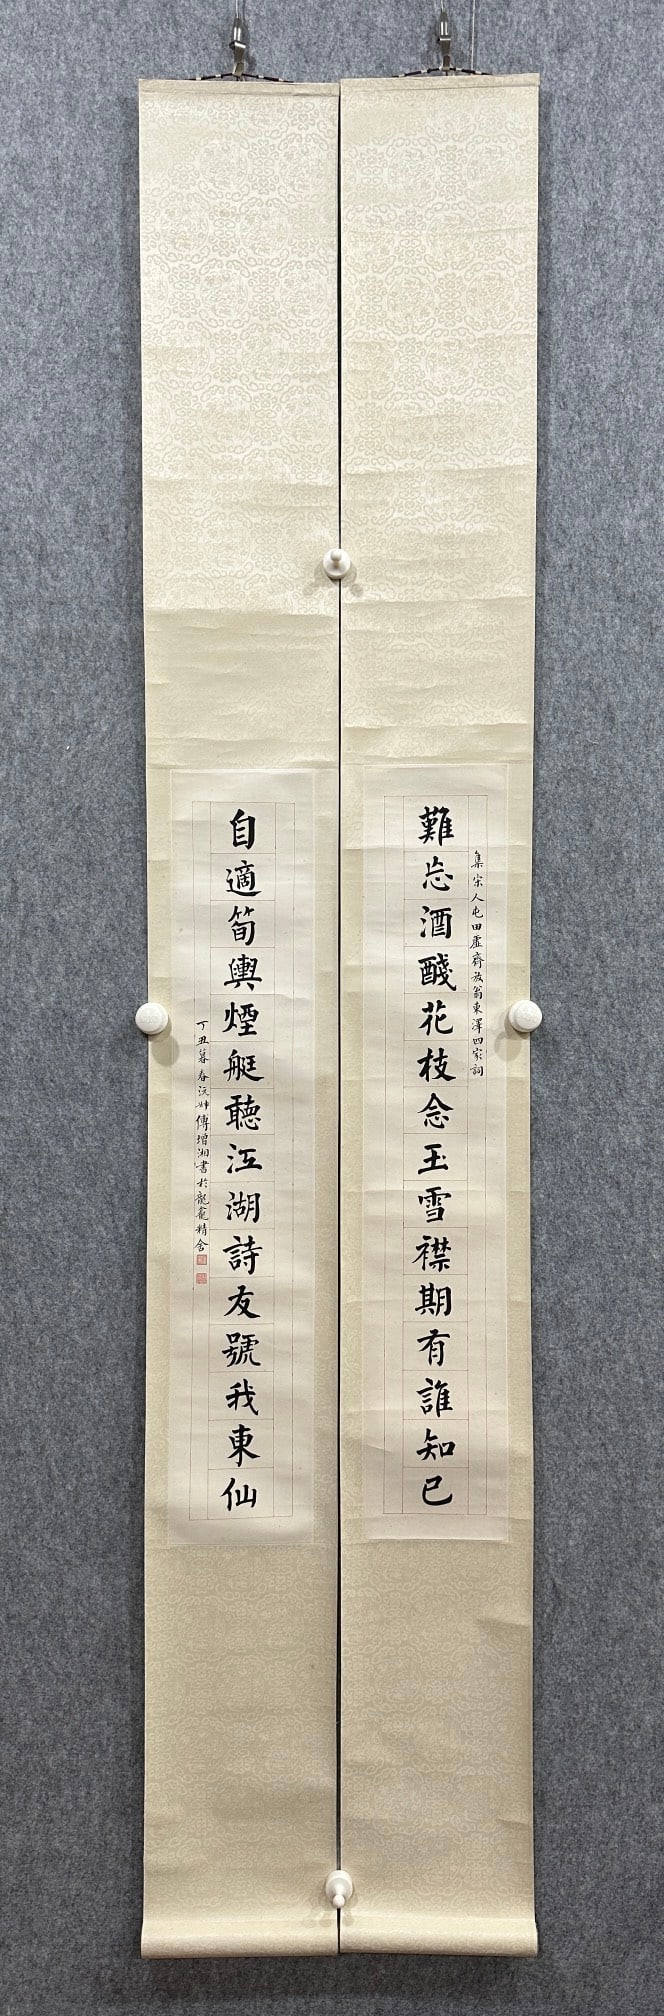 難忘酒醆花枝念玉雪襟期有誰知己
集宋人屯田虛齋放翁東澤四家詞
自適筍輿煙艇聽江湖詩友號我東仙
丁丑暮春沅叔傅增湘書於龍龕精舍